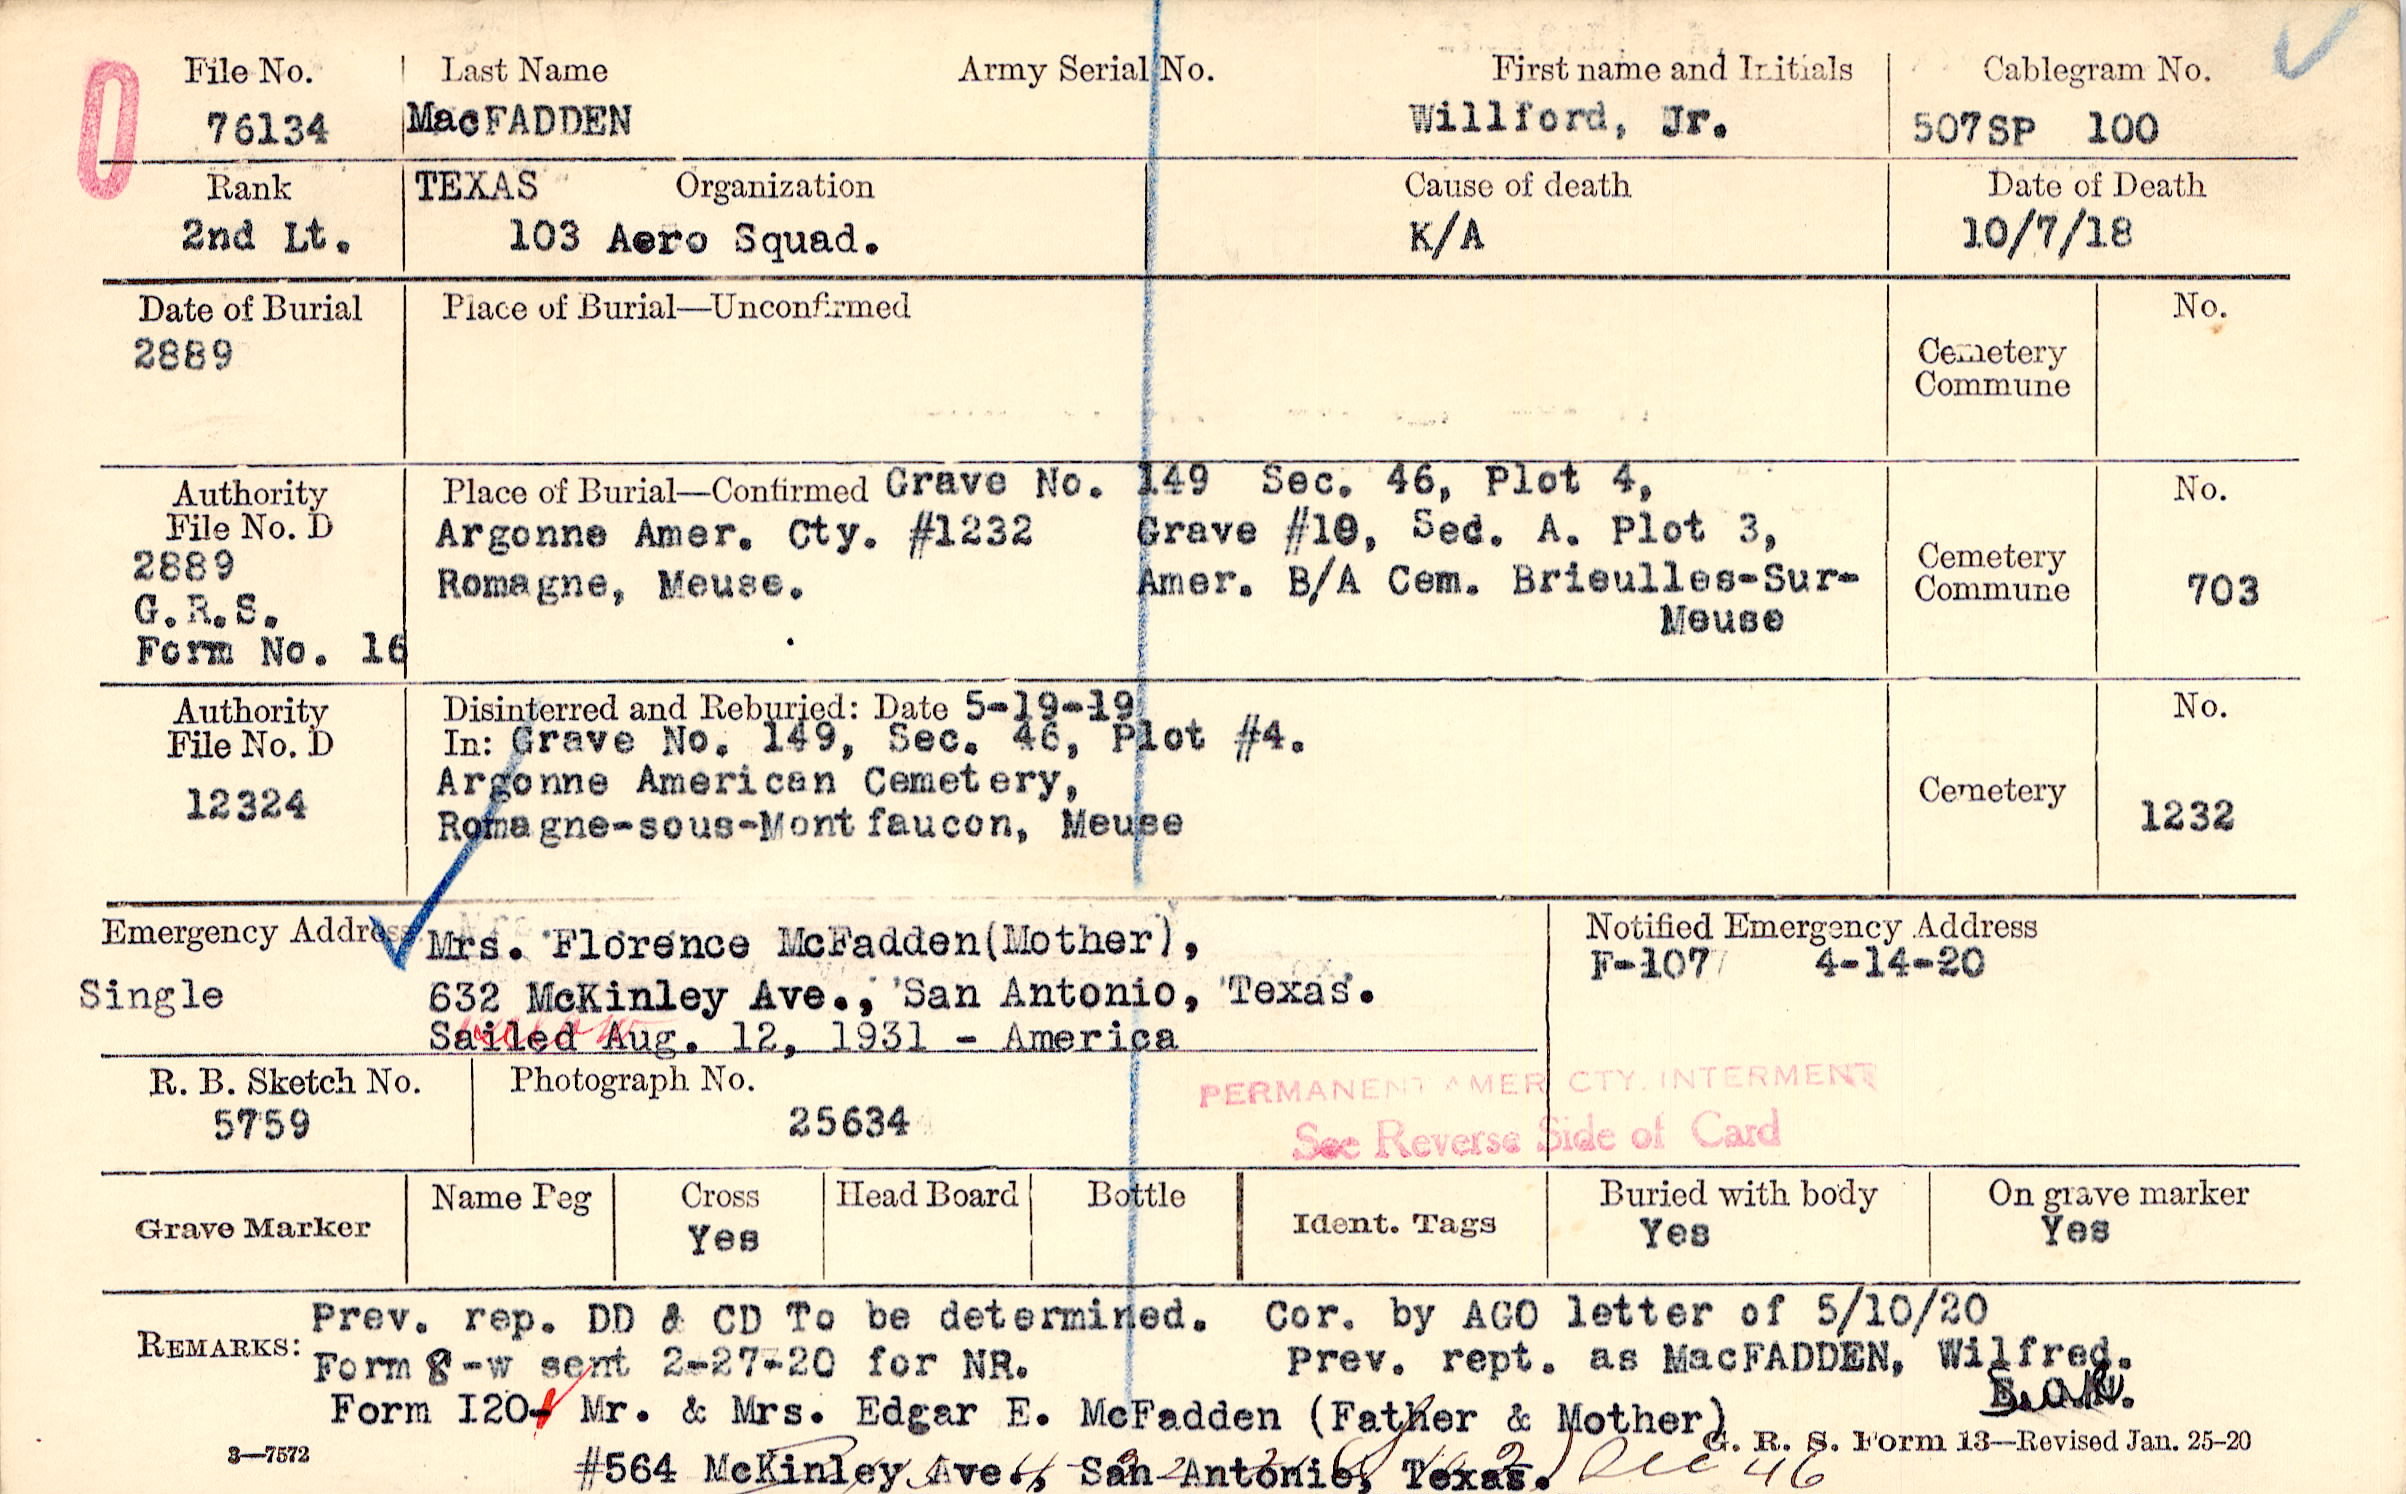 File No. Last Name Army Serial No. First name and Initials Cablegram No.
76134 MacFADDEN Willford, Jr. 507SP 100
Rank TEXAS Organization Cause of death Date of Death
2nd Lt. 103 Aero Squad. K/A 10/7/18
Date of Burial Place of Burial—Unconfirmed No.
2889
Cemetery
Commune
Authority Place of Burial—Confirmed Grave No. 149 Sec. 46, Plot 4, No.
File No. D Argonne Amer. Cty. #1232 Grave #10, Sed. A. Plot 3,
2889 Romagne, Meuse. Amer. B/A Cem. Brieulles-Sur-
Meuse
Cemetery
Commune 703
G.R.S.
Form No. 16
Authority Disinterred and Reburied: Date 5-19-19 No.
File No. D In: Grave No. 149, Sec. 46, Plot #4.
12324 Argonne American Cemetery, Cemetery 1232
Romagne-sous-Montfaucon, Meuse
Emergency Address Mrs. Florence McFadden(Mother), Notified Emergency Address
F-107 4-14-20
Single 632 McKinley Ave., San Antonio, Texas.
Sailed Aug. 12, 1931 - America
R. B. Sketch No. Photograph No. PERMANENT AMER CTY. INTERMENT
5759 25634 See Reverse Side of Card
Grave Marker Name Peg Cross Head Board Bottle Ident. Tags Buried with body On grave marker
Yes Yes Yes
REMARKS: Prev. rep. DD & CD To be determined. Cor. by AGO letter of 5/10/20
Form 8-w sent 2-27-20 for NR. Prev. rept. as MacFADDEN, Wilfred.
Form 120 Mr. & Mrs. Edgar E. McFadden (Father & Mother)
3—7572 G. R. S. Form 13—Revised Jan. 25-20
#564 McKinley Ave., San Antonio, Texas.